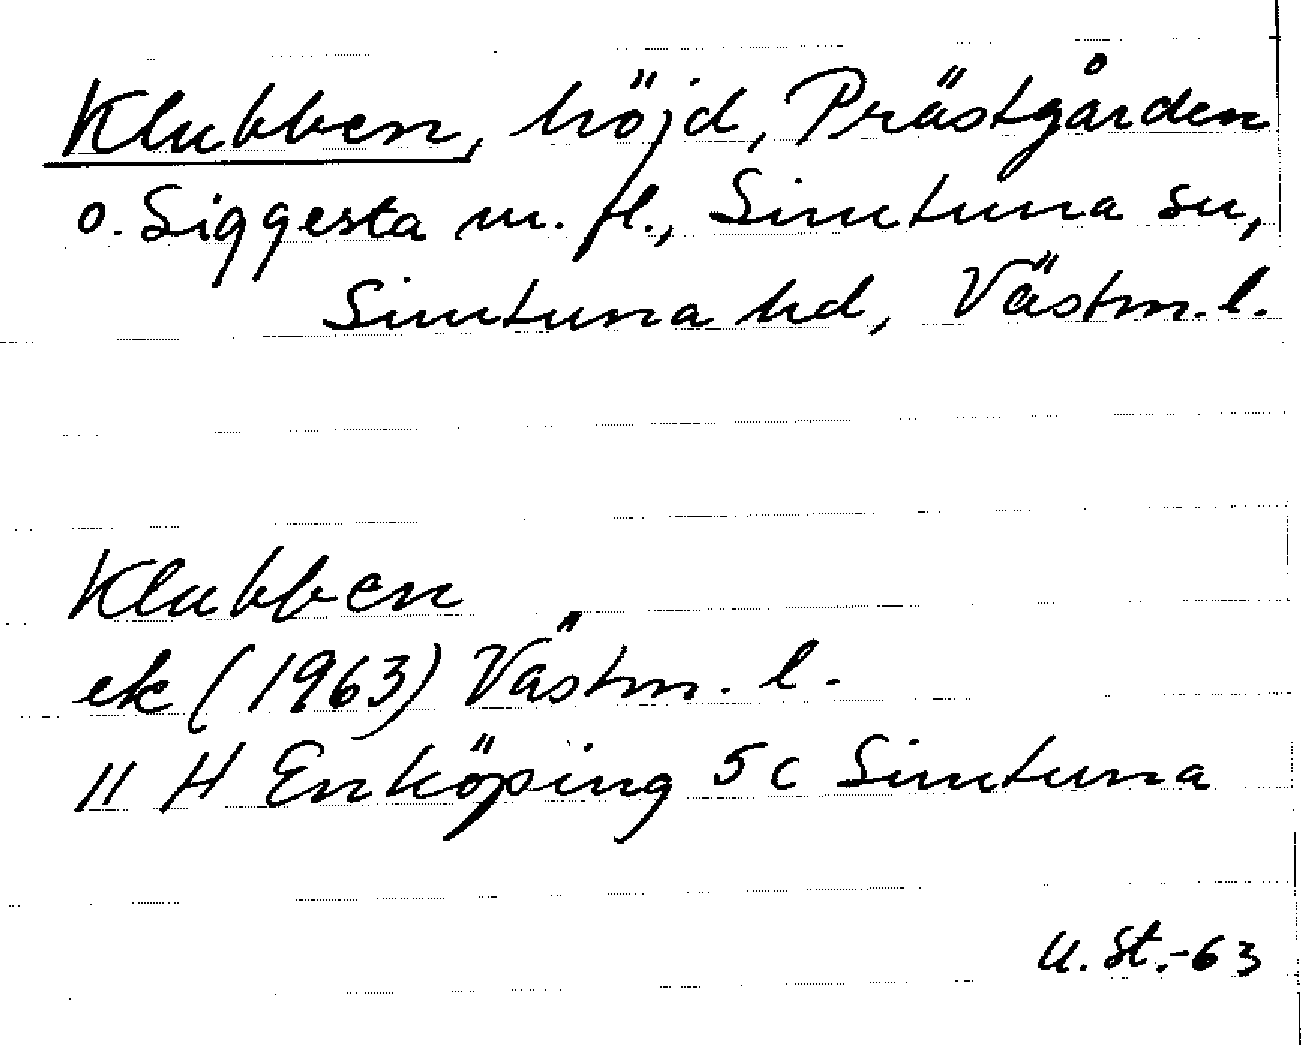 Klubben, höjd, Prästgården
o. Siggesta m. fl., Simtuna sn,
Simtuna hd, Västm. l.
Klubben
ek (1963) Västm. l.
11 H Enköping 5c Simtuna
U. St. -63